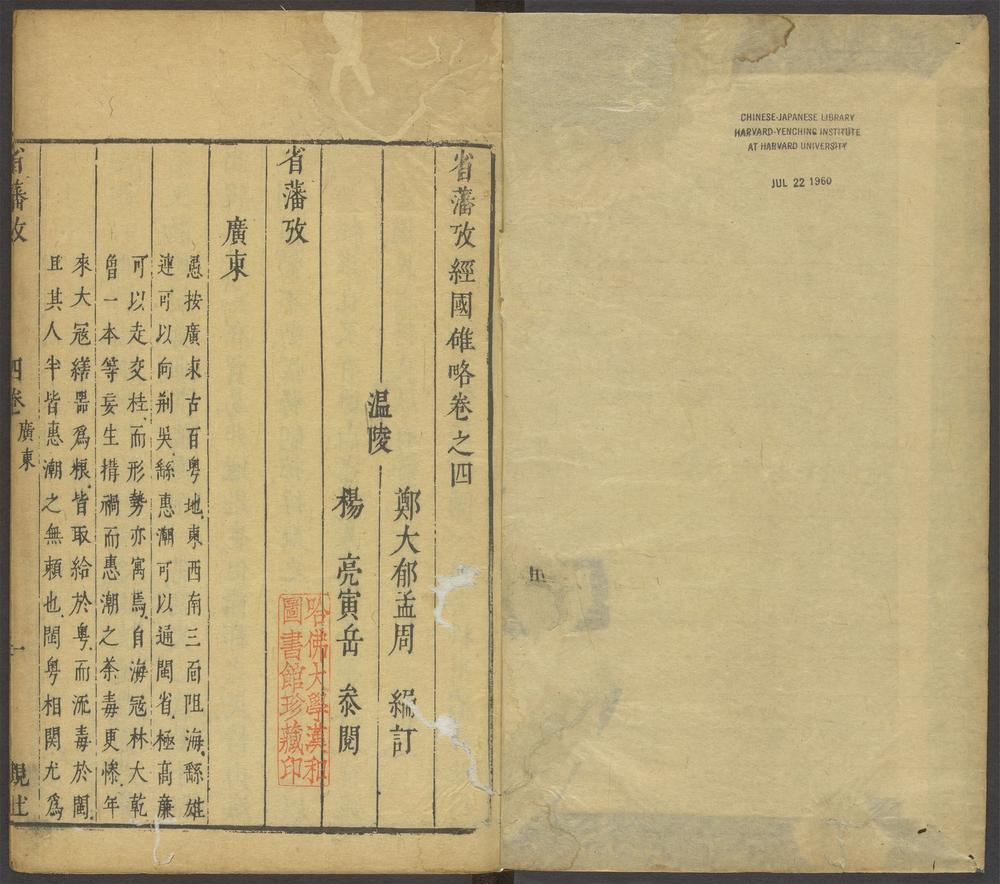 CHINESE-JAPANESE LIBRARY
HARVARD-YENCHING INSTITUTE
AT HARVARD UNIVERSITY
JUL 22 1960
省藩攷經國雄略卷之四
溫陵
鄭大郁孟周 編訂
楊 亮寅岳 叅閱
省藩攷
廣東
愚按廣東古百粤地東西南三面阻海繇雄
連可以向荆吳繇惠潮可以通閩省極高廉
可以走交桂而形勢亦寓焉自海冦林大乾
曾一本等妄生搆禍而惠潮之荼毒更慘年
來大冦繕噐爲粮皆取給於粤而流毒於閩
且其人半皆惠潮之無頼也閩粤相関尤爲
省藩攷 四卷 廣東 一 觀社
哈佛大學漢和
圖書館珍藏印